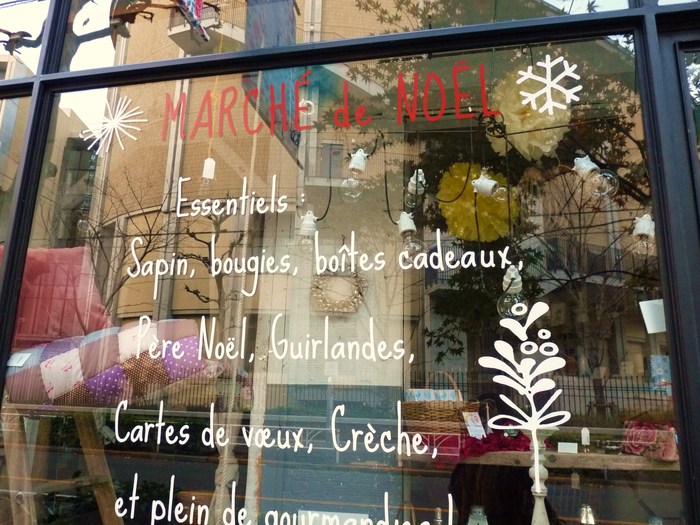 MARCHÉ de NOËL
Essentiels :
Sapin, bougies, boîtes cadeaux,
Père Noël, Guirlandes,
Cartes de vœux, Crèche,
et plein de gourmandises !